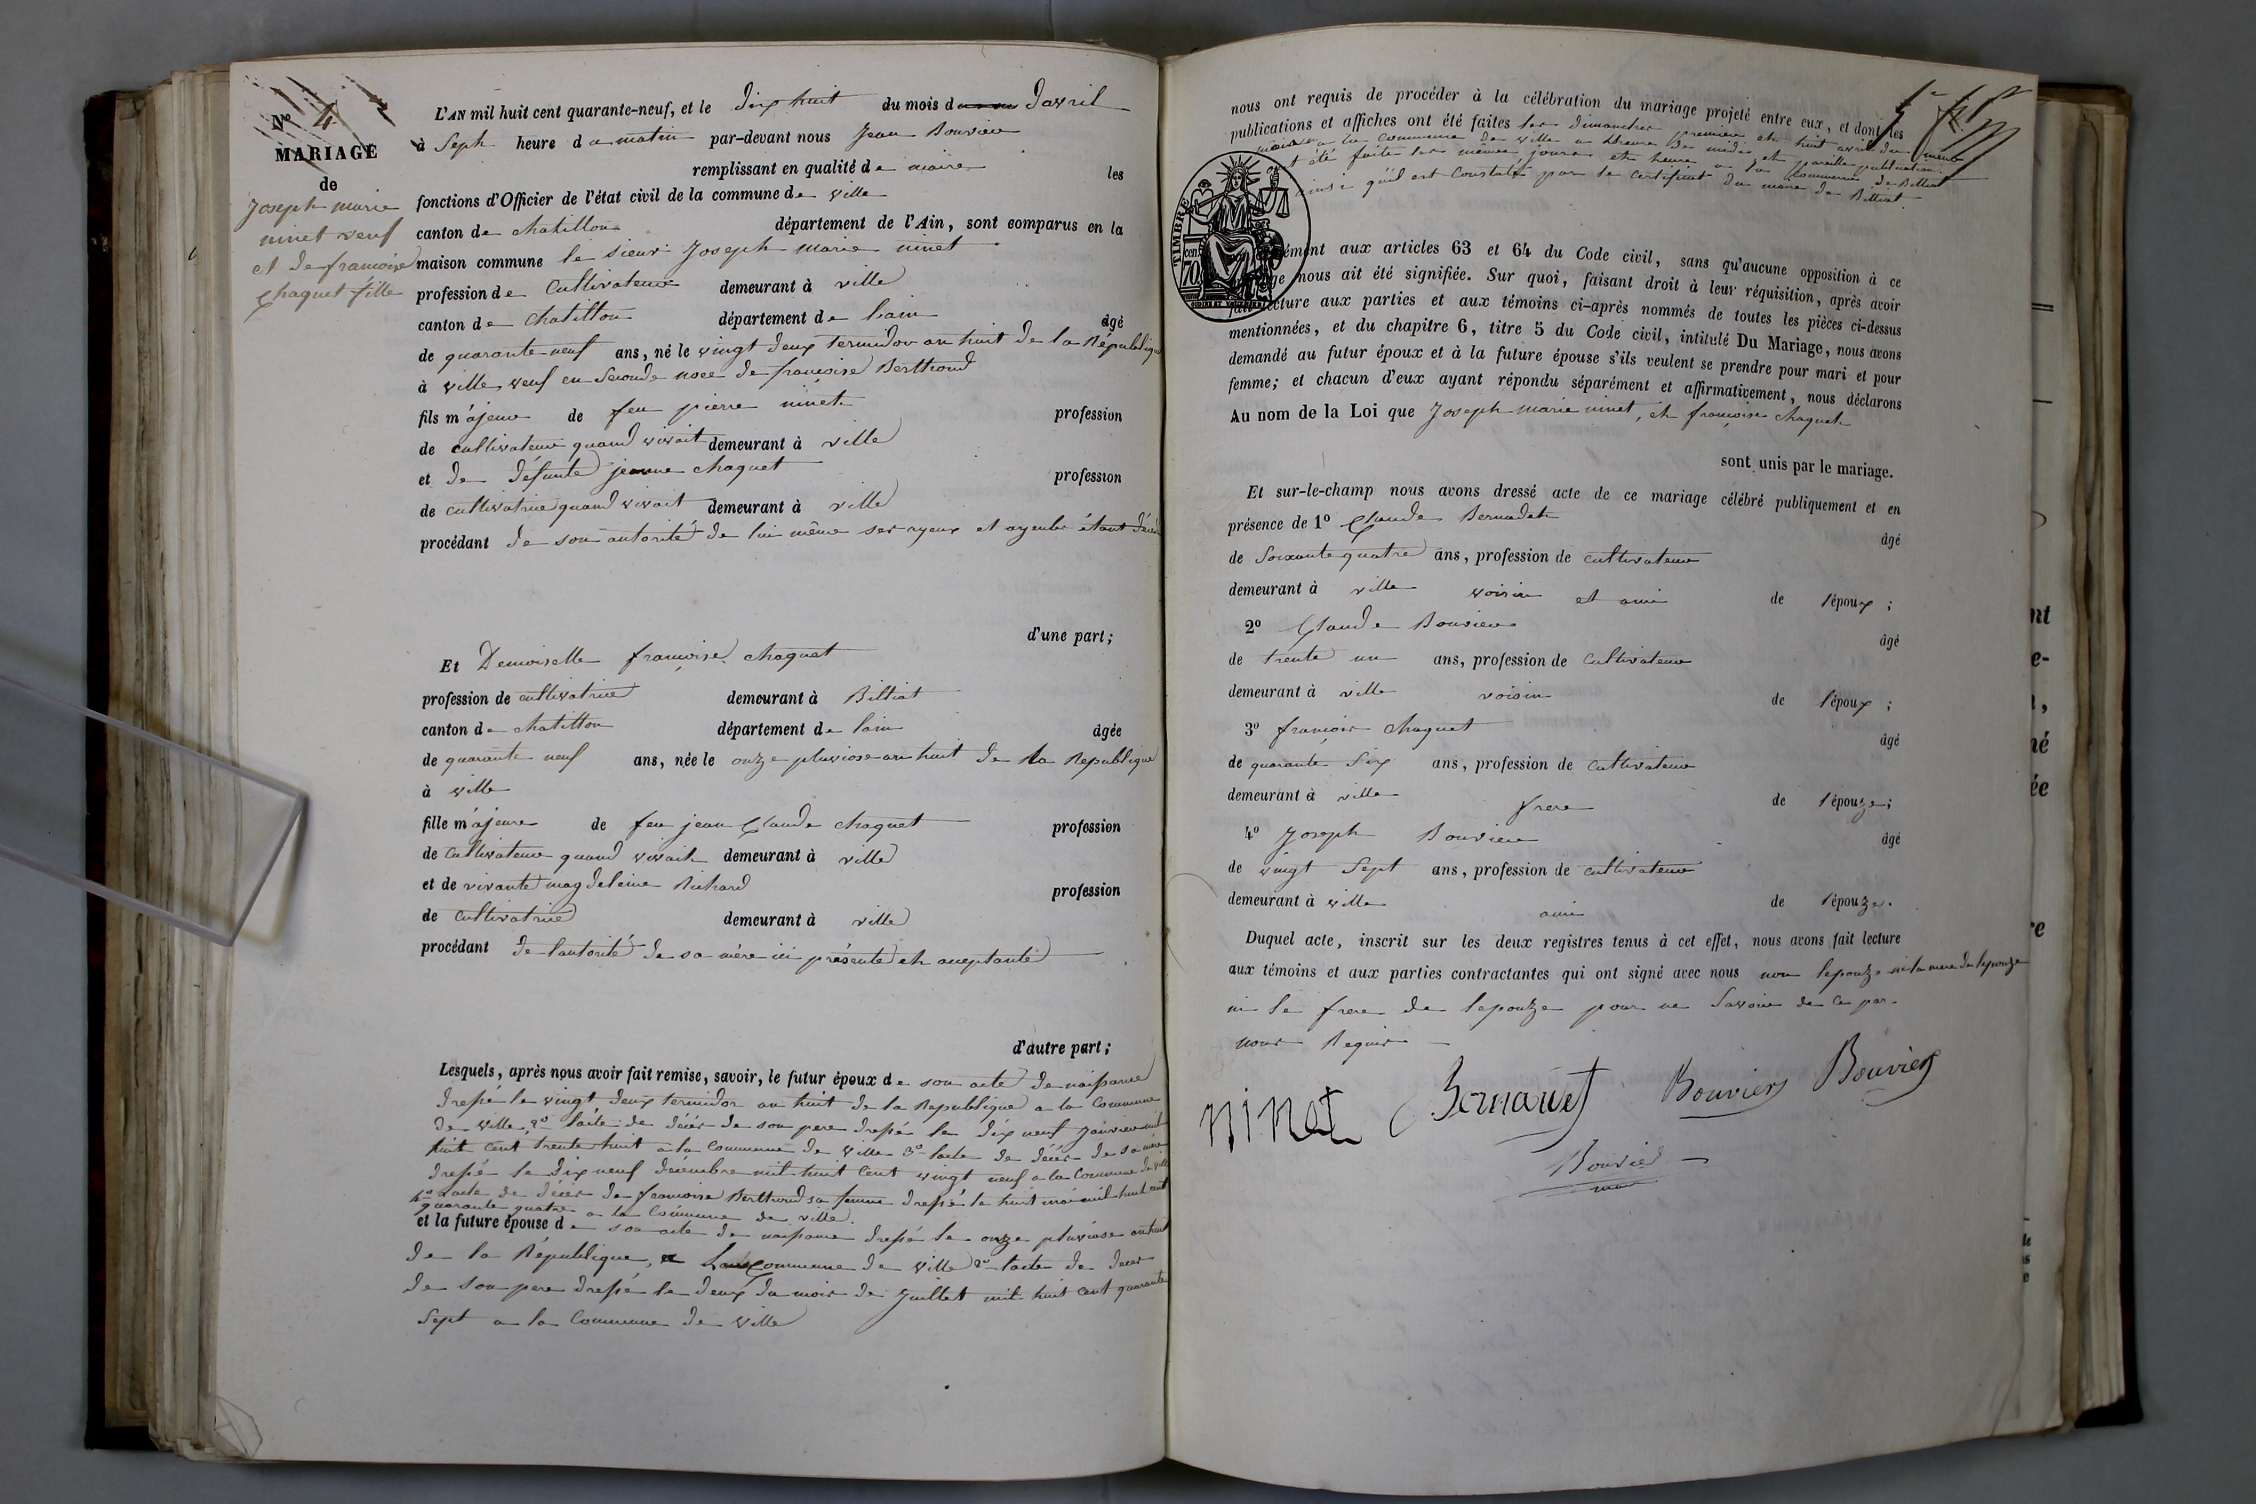 N° 4
MARIAGE
de
Joseph marie
ninet veuf
et de francoise
Chaquet fille
L'AN mil huit cent quarante-neuf, et le dix huit du mois d davril
à Seph heure du matin par-devant nous Jean Bouvier
remplissant en qualité de maire les
fonctions d'Officier de l'état civil de la commune de ville
canton de chatillon département de l'Ain, sont comparus en la
maison commune le sieur Joseph marie ninet
profession de Cultivateur demeurant à ville
canton de Chatillon département de lain âgé
de quarante neuf ans, né le vingt deux termidor an huit de la République
à ville, veuf en Seconde noce de françoise Berthoud
fils majeur de feu pierre ninet profession
de cultivateur quand vivait demeurant à ville
et de défunte jeanne chaquet profession
de cultivatrice quand vivait demeurant à ville
procédant de son autorité de lui même ses ayeux et ayeules étant
d'une part;
Et Demoiselle françoise chaquet
profession de cultivatrice demeurant à Billiat
canton de chatillon département de lain âgée
de quarante neuf ans, née le onze pluviose an huit de la Republique
à ville
fille majeure de feu jean Claude chaquet profession
de Cultivateur quand vivait demeurant à ville
et de vivante magdeleine Richard profession
de cultivatrice demeurant à ville
procédant de lautorité de sa mère ici présente et aceptante
d'autre part;
Lesquels, après nous avoir fait remise, savoir, le futur époux de son acte de naissance
dressé le vingt deux termidor an huit de la Republique a la Commune
de ville, 2° lacte de décès de son pere dressé le dix neuf janvier mil
huit cent trente huit a la commune de ville 3° lacte de décès de sa mère
dressé le dix neuf decembre mil huit cent vingt neuf a la Commune de ville
4° lacte de décès de francoise Berthoud sa femme dressé le huit mai mil huit cent
quarante quatre a la Commune de ville.
et la future épouse de son acte de naissance dressé le onze pluviose an huit
de la République, a la commune de ville 2° lacte de deces
de son pere dressé le deux du mois de Juillet mil huit cent quarante
Sept a la Commune de ville
nous ont requis de procéder à la célébration du mariage projeté entre eux, et dont les
publications et affiches ont été faites les dimanches premier et huit avril du même
mois a la commune de ville a lheure de midi et pareille publication
été faite les mêmes jours et heure a la Commune de Billiat
ainsi quil est Constaté par le certificat du maire de Billiat
TIMBRE
70
ément aux articles 63 et 64 du Code civil, sans qu'aucune opposition à ce
ge nous ait été signifiée. Sur quoi, faisant droit à leur réquisition, après avoir
fait lecture aux parties et aux témoins ci-après nommés de toutes les pièces ci-dessus
mentionnées, et du chapitre 6, titre 5 du Code civil, intitulé Du Mariage, nous avons
demandé au futur époux et à la future épouse s'ils veulent se prendre pour mari et pour
femme; et chacun d'eux ayant répondu séparément et affirmativement, nous déclarons
Au nom de la Loi que Joseph marie ninet, et françoise chaquet
sont unis par le mariage.
Et sur-le-champ nous avons dressé acte de ce mariage célébré publiquement et en
présence de 1° Claude Bernadet âgé
de Soixante quatre ans, profession de cultivateur
demeurant à ville voisin et ami de l'époux;
2° Claude Bouvier âgé
de trente un ans, profession de Cultivateur
demeurant à ville voisin de l'époux;
3° françois chaquet âgé
de quarante Six ans, profession de Cultivateur
demeurant à ville frere de l'épouze;
4° Joseph Bouvier âgé
de vingt Sept ans, profession de cultivateur
demeurant à ville ami de l'épouze.
Duquel acte, inscrit sur les deux registres tenus à cet effet, nous avons fait lecture
aux témoins et aux parties contractantes qui ont signé avec nous non lepouze ni la mere de lepouze
ni le frere de lepouze pour ne Savoir de ce par
nous Requis
ninet Bernadet Bouvier Bouvier
Bouvier
maire